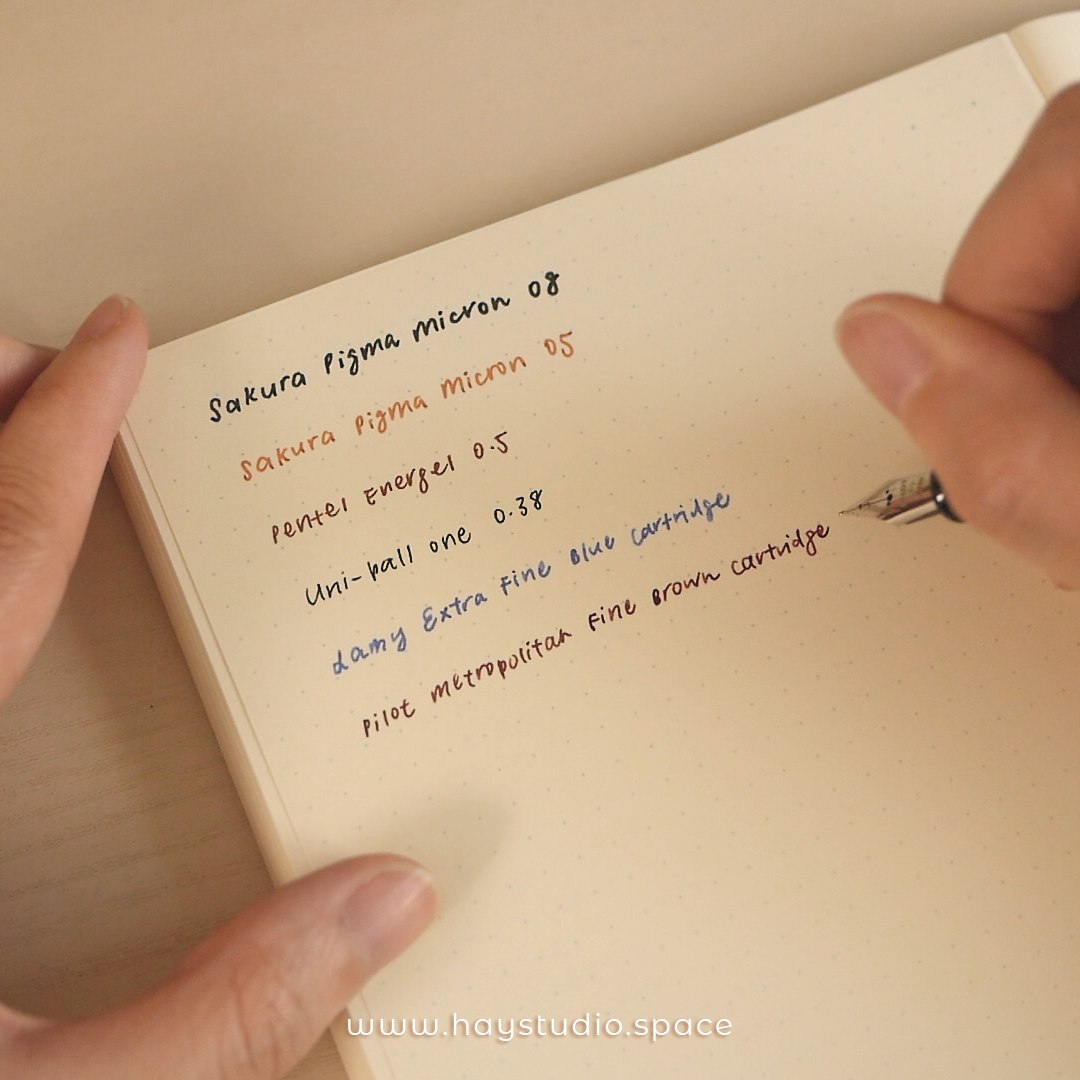 Sakura Pigma Micron 08
Sakura Pigma Micron 05
Pentel Energel 0.5
Uni-ball one 0.38
Lamy Extra Fine Blue cartridge
Pilot Metropolitan Fine Brown cartridge
www.haystudio.space